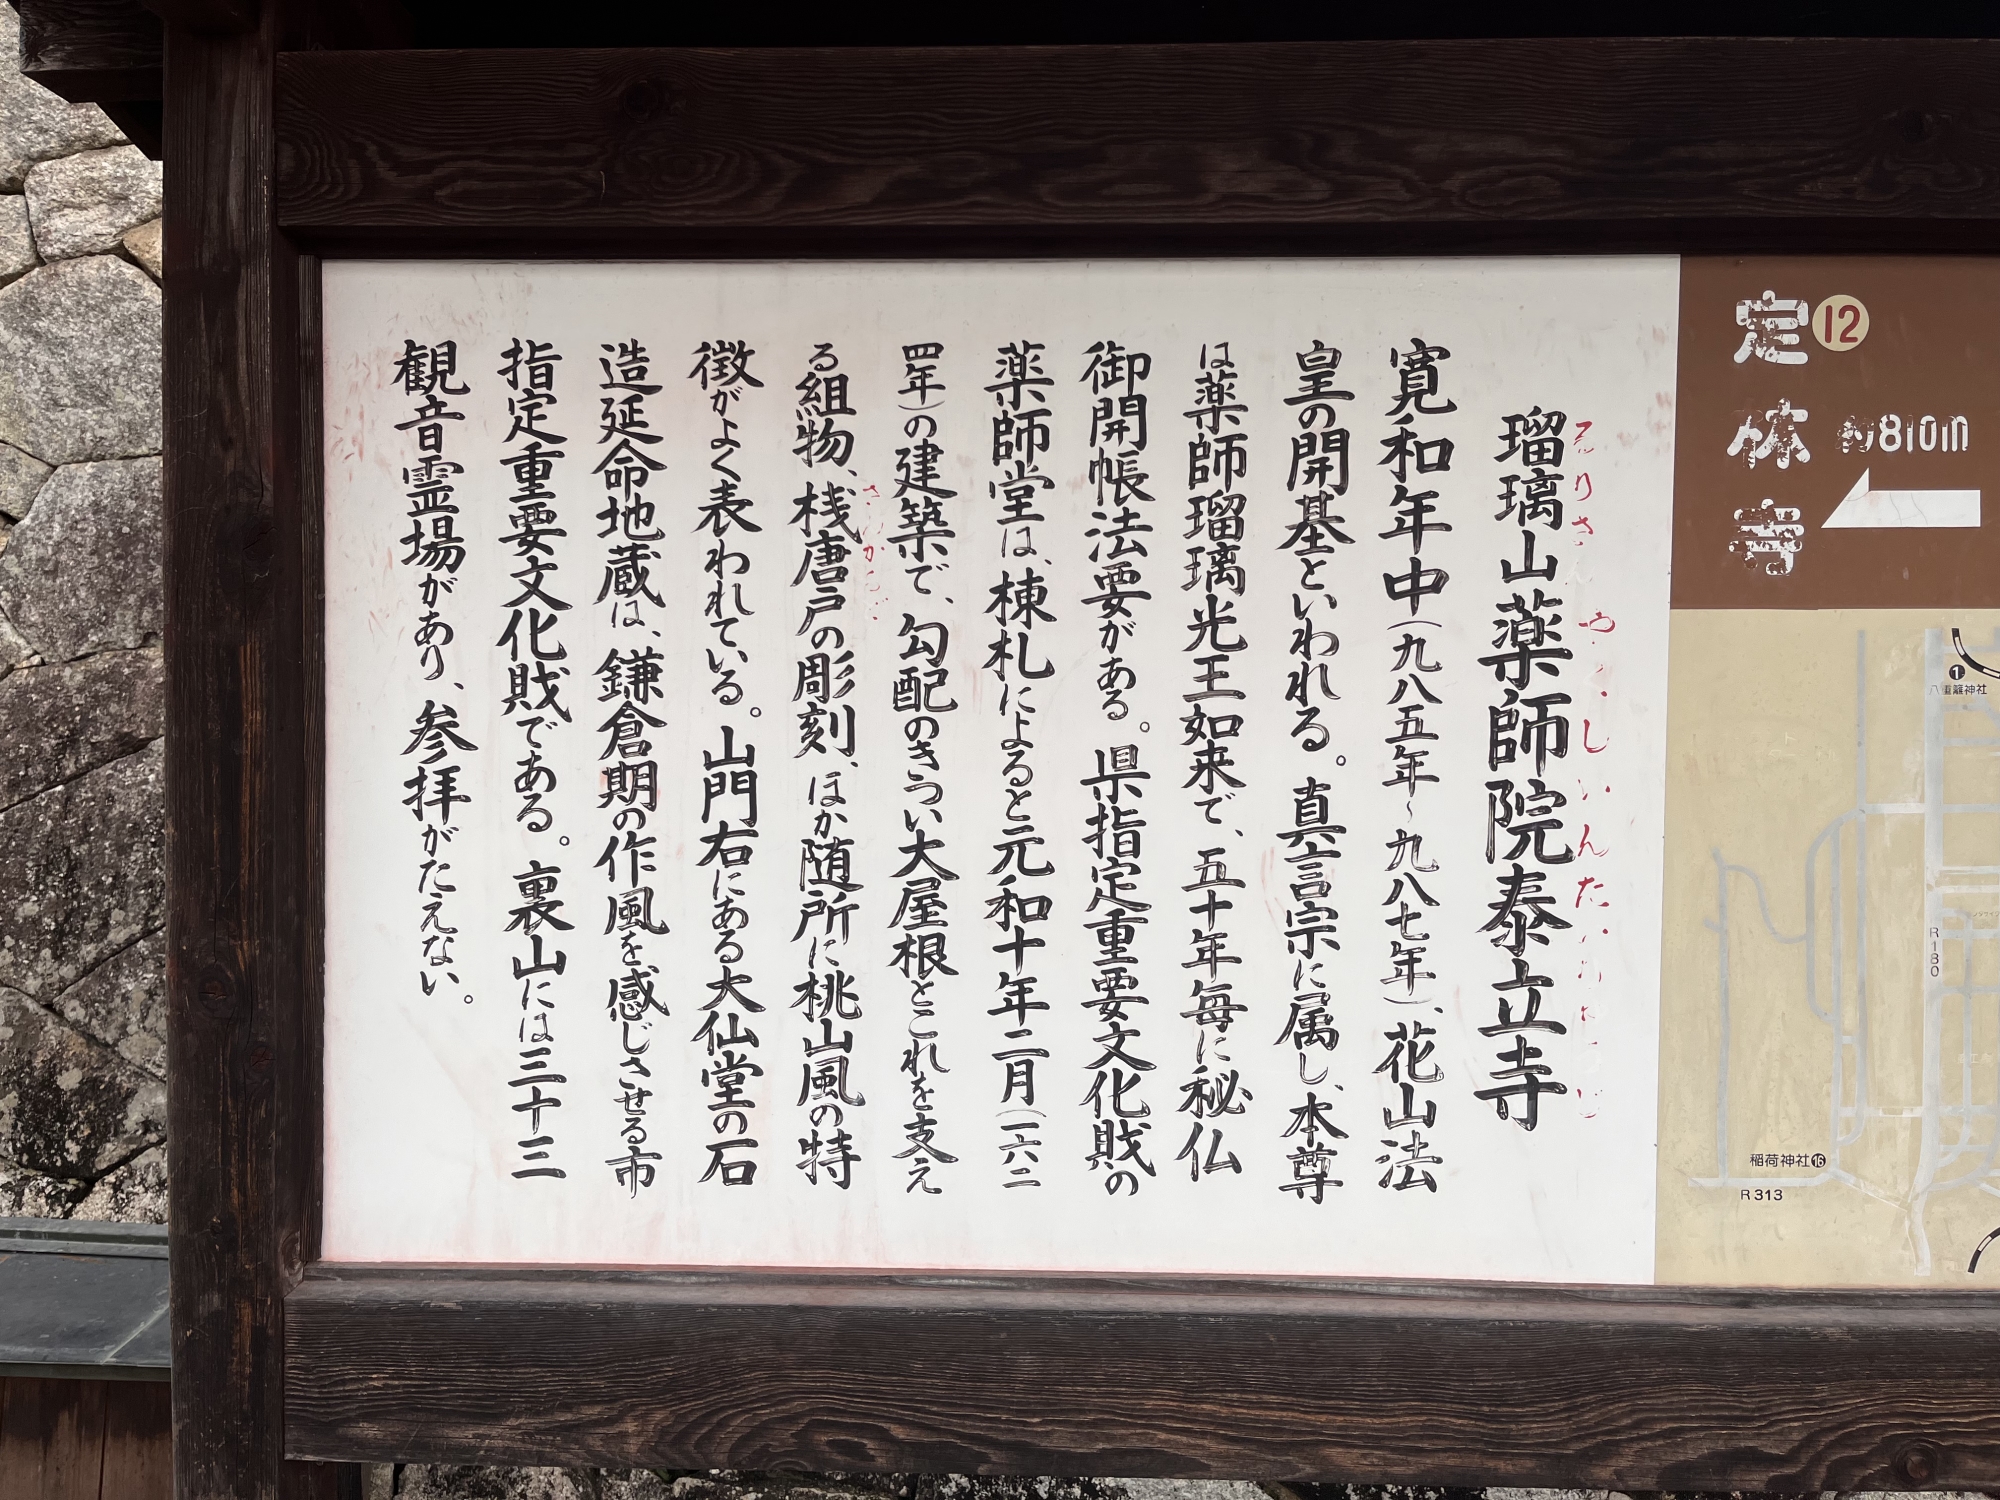 瑠璃山薬師院泰立寺
寛和年中（九八五年～九八七年）、花山法
皇の開基といわれる。真言宗に属し、本尊
は薬師瑠璃光王如来で、五十年毎に秘仏
御開帳法要がある。県指定重要文化財の
薬師堂は、棟札によると元和十年二月（一六二
四年）の建築で、勾配のきつい大屋根とこれを支え
る組物、桟唐戸の彫刻、ほか随所に桃山風の特
徴がよく表われている。山門右にある大仙堂の石
造延命地蔵は、鎌倉期の作風を感じさせる市
指定重要文化財である。裏山には三十三
観音霊場があり、参拝がたえない。
定林寺 12
約810m
1
八重籬神社
R180
稲荷神社16
R313